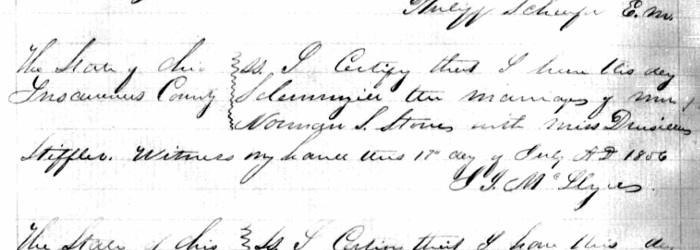 Philipp Scheufe E.m.
The State of Ohio } ss. I Certify that I have this day
Tuscarawas County } Solemnized the marriage of mr
Norman S. Stones with miss Drusilla
Stiffler. Witness my hand this 17 day of July A D 1856
The State of Ohio } ss I Certify that I have this day